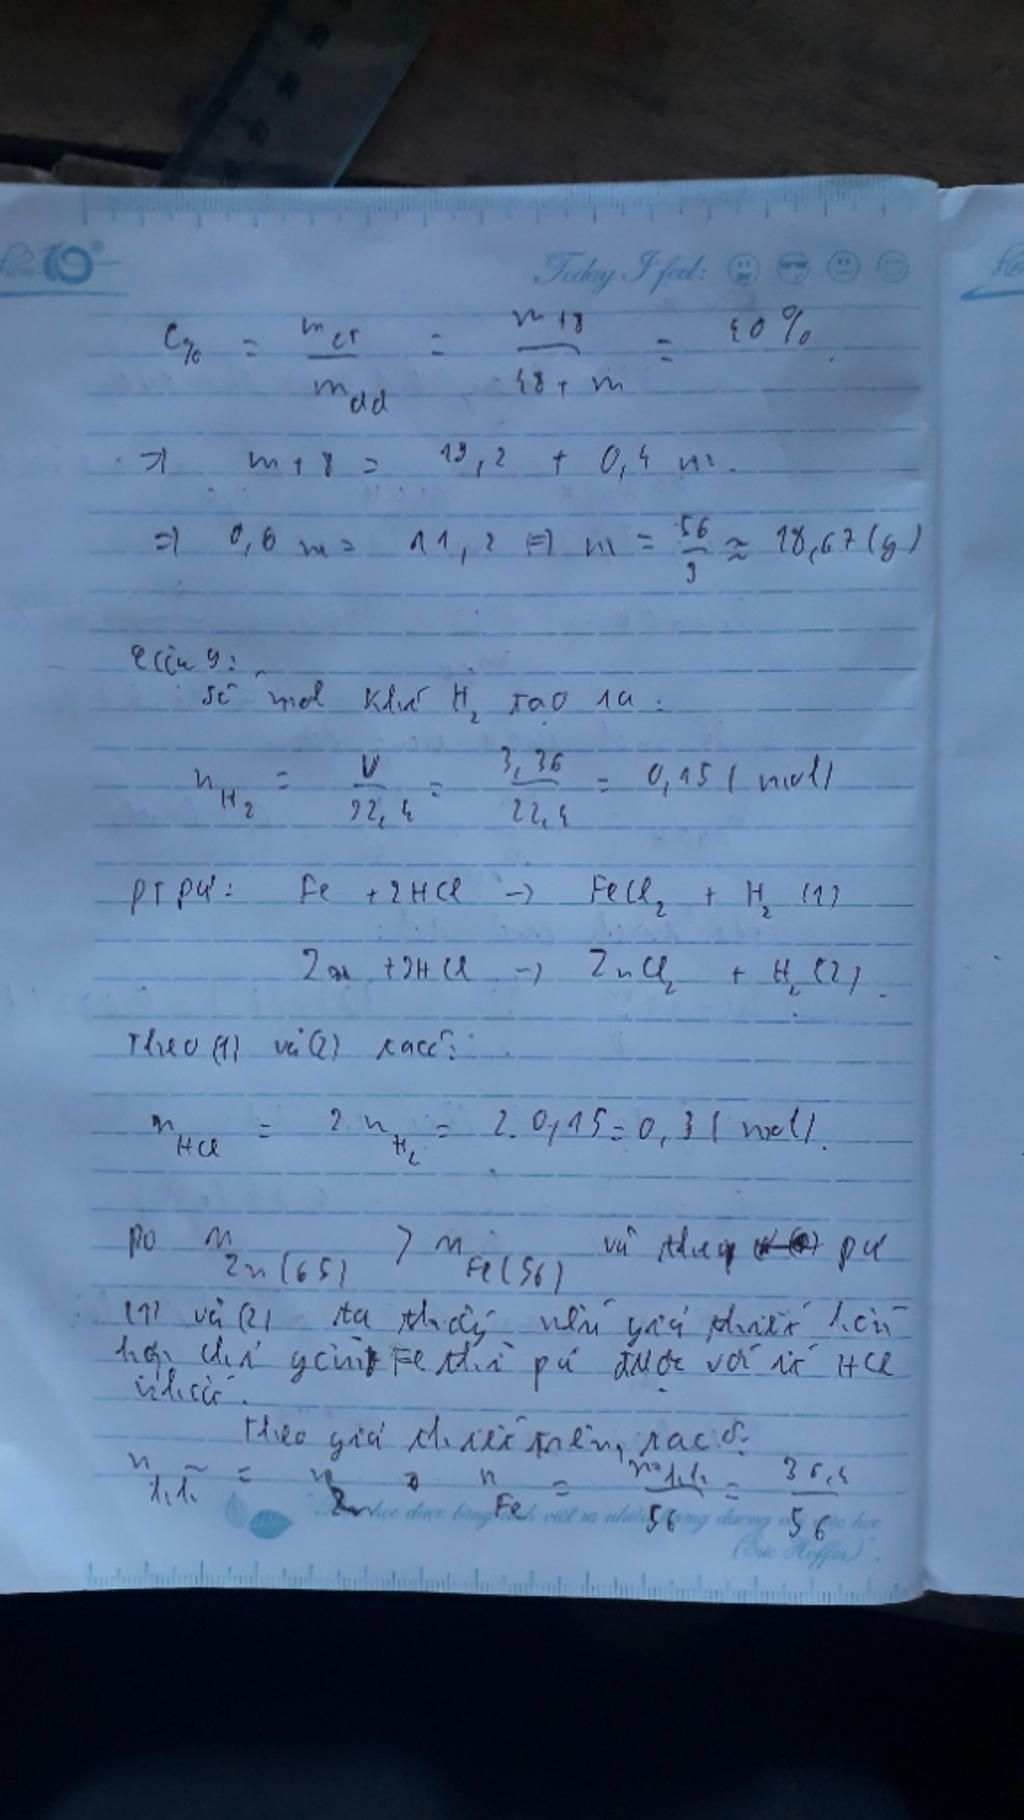 Today I feel:
C% = mct / mdd = m+8 / 48+m = 40%.
=> m+8 = 19,2 + 0,4 m.
=> 0,6 m = 11,2 => m = 56/3 ≈ 18,67 (g)
Câu 9:
Số mol khí H2 tạo ra:
nH2 = V/22,4 = 3,36/22,4 = 0,15 (mol)
PTPứ: Fe + 2HCl -> FeCl2 + H2 (1)
Zn + 2HCl -> ZnCl2 + H2 (2).
Theo (1) và (2) ta có:
nHCl = 2.nH2 = 2.0,15 = 0,3 (mol).
Do MZn (65) > MFe (56) và theo pứ
(1) và (2) ta thấy nếu giả thiết hỗn
hợp chỉ gồm Fe thì pứ được với ít HCl
nhất.
Theo giả thiết trên, ta có:
nhh = nFe = mhh/56 = 36,4/56
học được bằng cách viết ra
(Eric Hoffer)